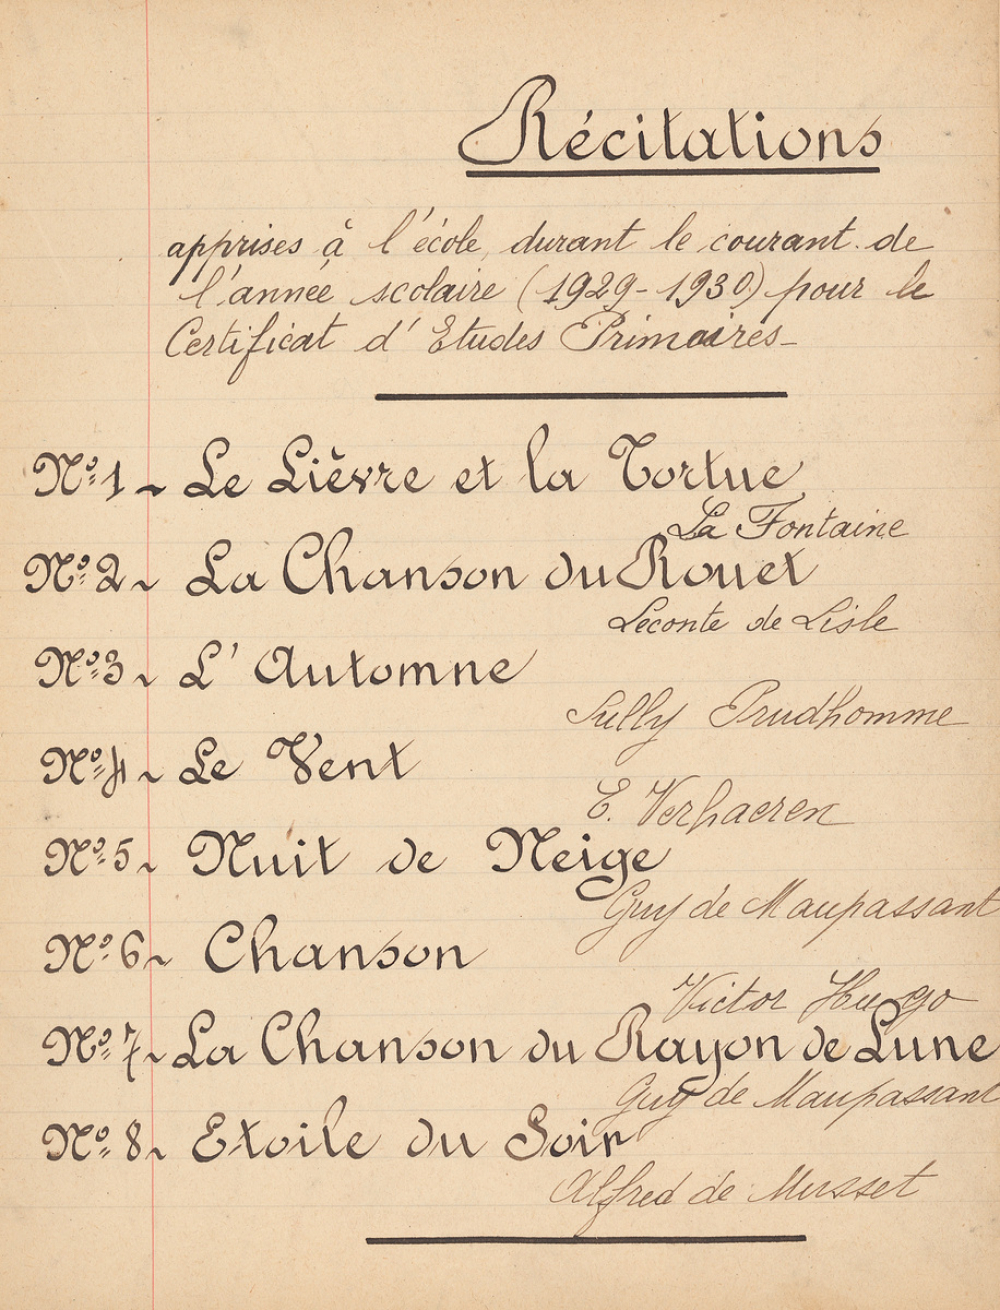 Récitations
apprises à l'école, durant le courant de
l'année scolaire (1929-1930) pour le
Certificat d'Etudes Primaires-
Nº 1 ~ Le Lièvre et la Tortue
La Fontaine
Nº 2 ~ La Chanson du Rouet
Leconte de Lisle
Nº 3 ~ L'Automne
Sully Prudhomme
Nº 4 ~ Le Vent
E. Verhaeren
Nº 5 ~ Nuit de Neige
Guy de Maupassant
Nº 6 ~ Chanson
Victor Hugo
Nº 7 ~ La Chanson du Rayon de Lune
Guy de Maupassant
Nº 8 ~ Etoile du Soir
Alfred de Musset